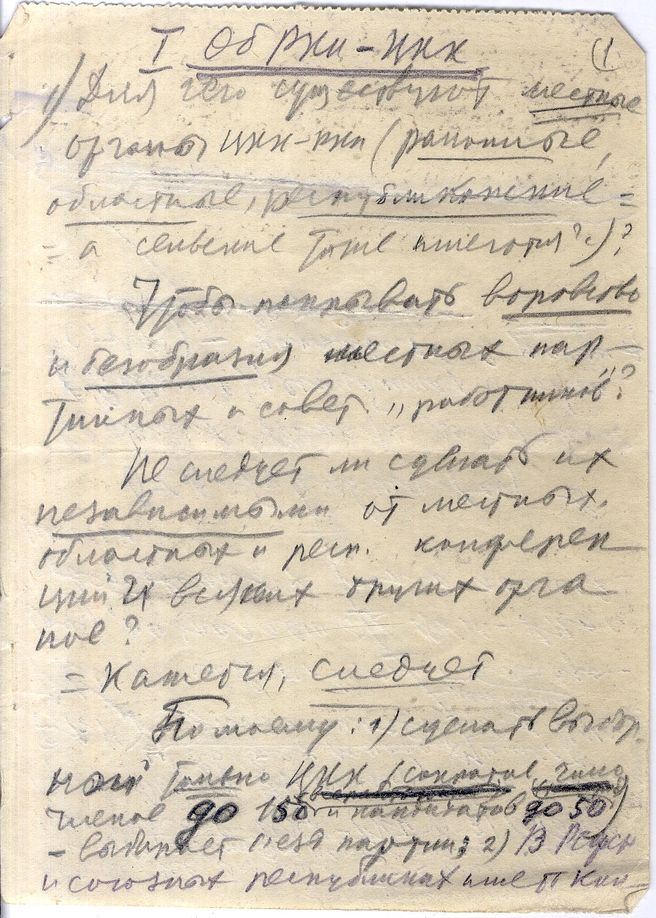 I Об РКИ – ЦКК (1
1) Для чего существуют местные
органы ЦКК-РКИ (районные,
областные, республиканские =
= а сельские тоже имеются?.)?
Чтобы покрывать воровство
и безобразия местных пар-
тийных и совет. „работников"?
Не следует ли сделать их
независимыми от местных,
областных и респ. конферен
ций и всяких других орга
нов?
= Кажется, следует.
По моему: 1) сделать выбор.
ной только ЦКК (сократив число
членов до 150 и кандидатов до 50)
– выбирает съезд партии; 2) В РСФСР
и союзных республиках имет